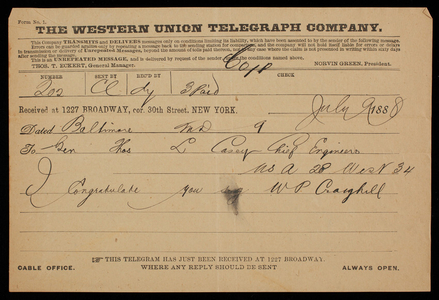 Form No. 1.
THE WESTERN UNION TELEGRAPH COMPANY.
This Company TRANSMITS and DELIVERS messages only on conditions limiting its liability, which have been assented to by the sender of the following message.
Errors can be guarded against only by repeating a message back to the sending station for comparison, and the company will not hold itself liable for errors or delays
in transmission or delivery of Unrepeated Messages, beyond the amount of tolls paid thereon, nor in any case where the claim is not presented in writing within sixty days
after sending the message.
This is an UNREPEATED MESSAGE, and is delivered by request of the sender under the conditions named above.
THOS. T. ECKERT, General Manager. NORVIN GREEN, President.
Copy
NUMBER SENT BY REC'D BY CHECK
202 Cl Dy 3 Paid
Received at 1227 BROADWAY, cor. 30th Street, NEW YORK. July 9 1888
Dated Baltimore Md 9
To Gen Thos L Casey Chief Engineers
USA 28 West 34
I Congratulate you W P Craighill
THIS TELEGRAM HAS JUST BEEN RECEIVED AT 1227 BROADWAY.
CABLE OFFICE. WHERE ANY REPLY SHOULD BE SENT ALWAYS OPEN.